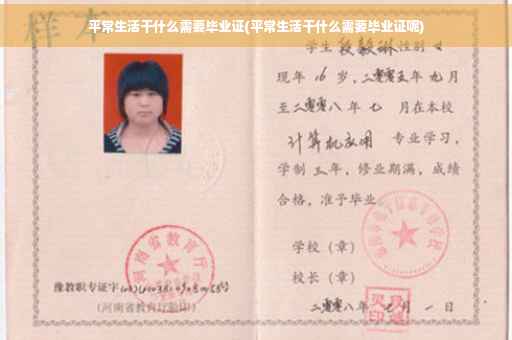 平常生活干什么需要毕业证(平常生活干什么需要毕业证呢)
样本
学生 段毅琳 性别 女
现年 16 岁，二零零五年 九月
至二零零八年 七 月在本校
计算机应用 专业学习，
学制 三 年，修业期满，成绩
合格，准予毕业
学校（章）
校长（章）
二零零八年 七 月 一 日
河南省教育厅
豫教职专证字
(河南省教育厅验印)